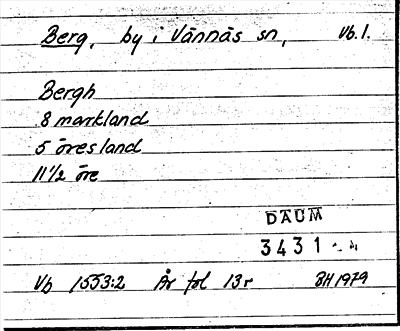 Berg, by i Vännäs sn, Vb.l.
Bergh
8 markland
5 öresland
11 1/2 öre
DAUM
3431
Vb 1553:2 År fol 13r BH 1979